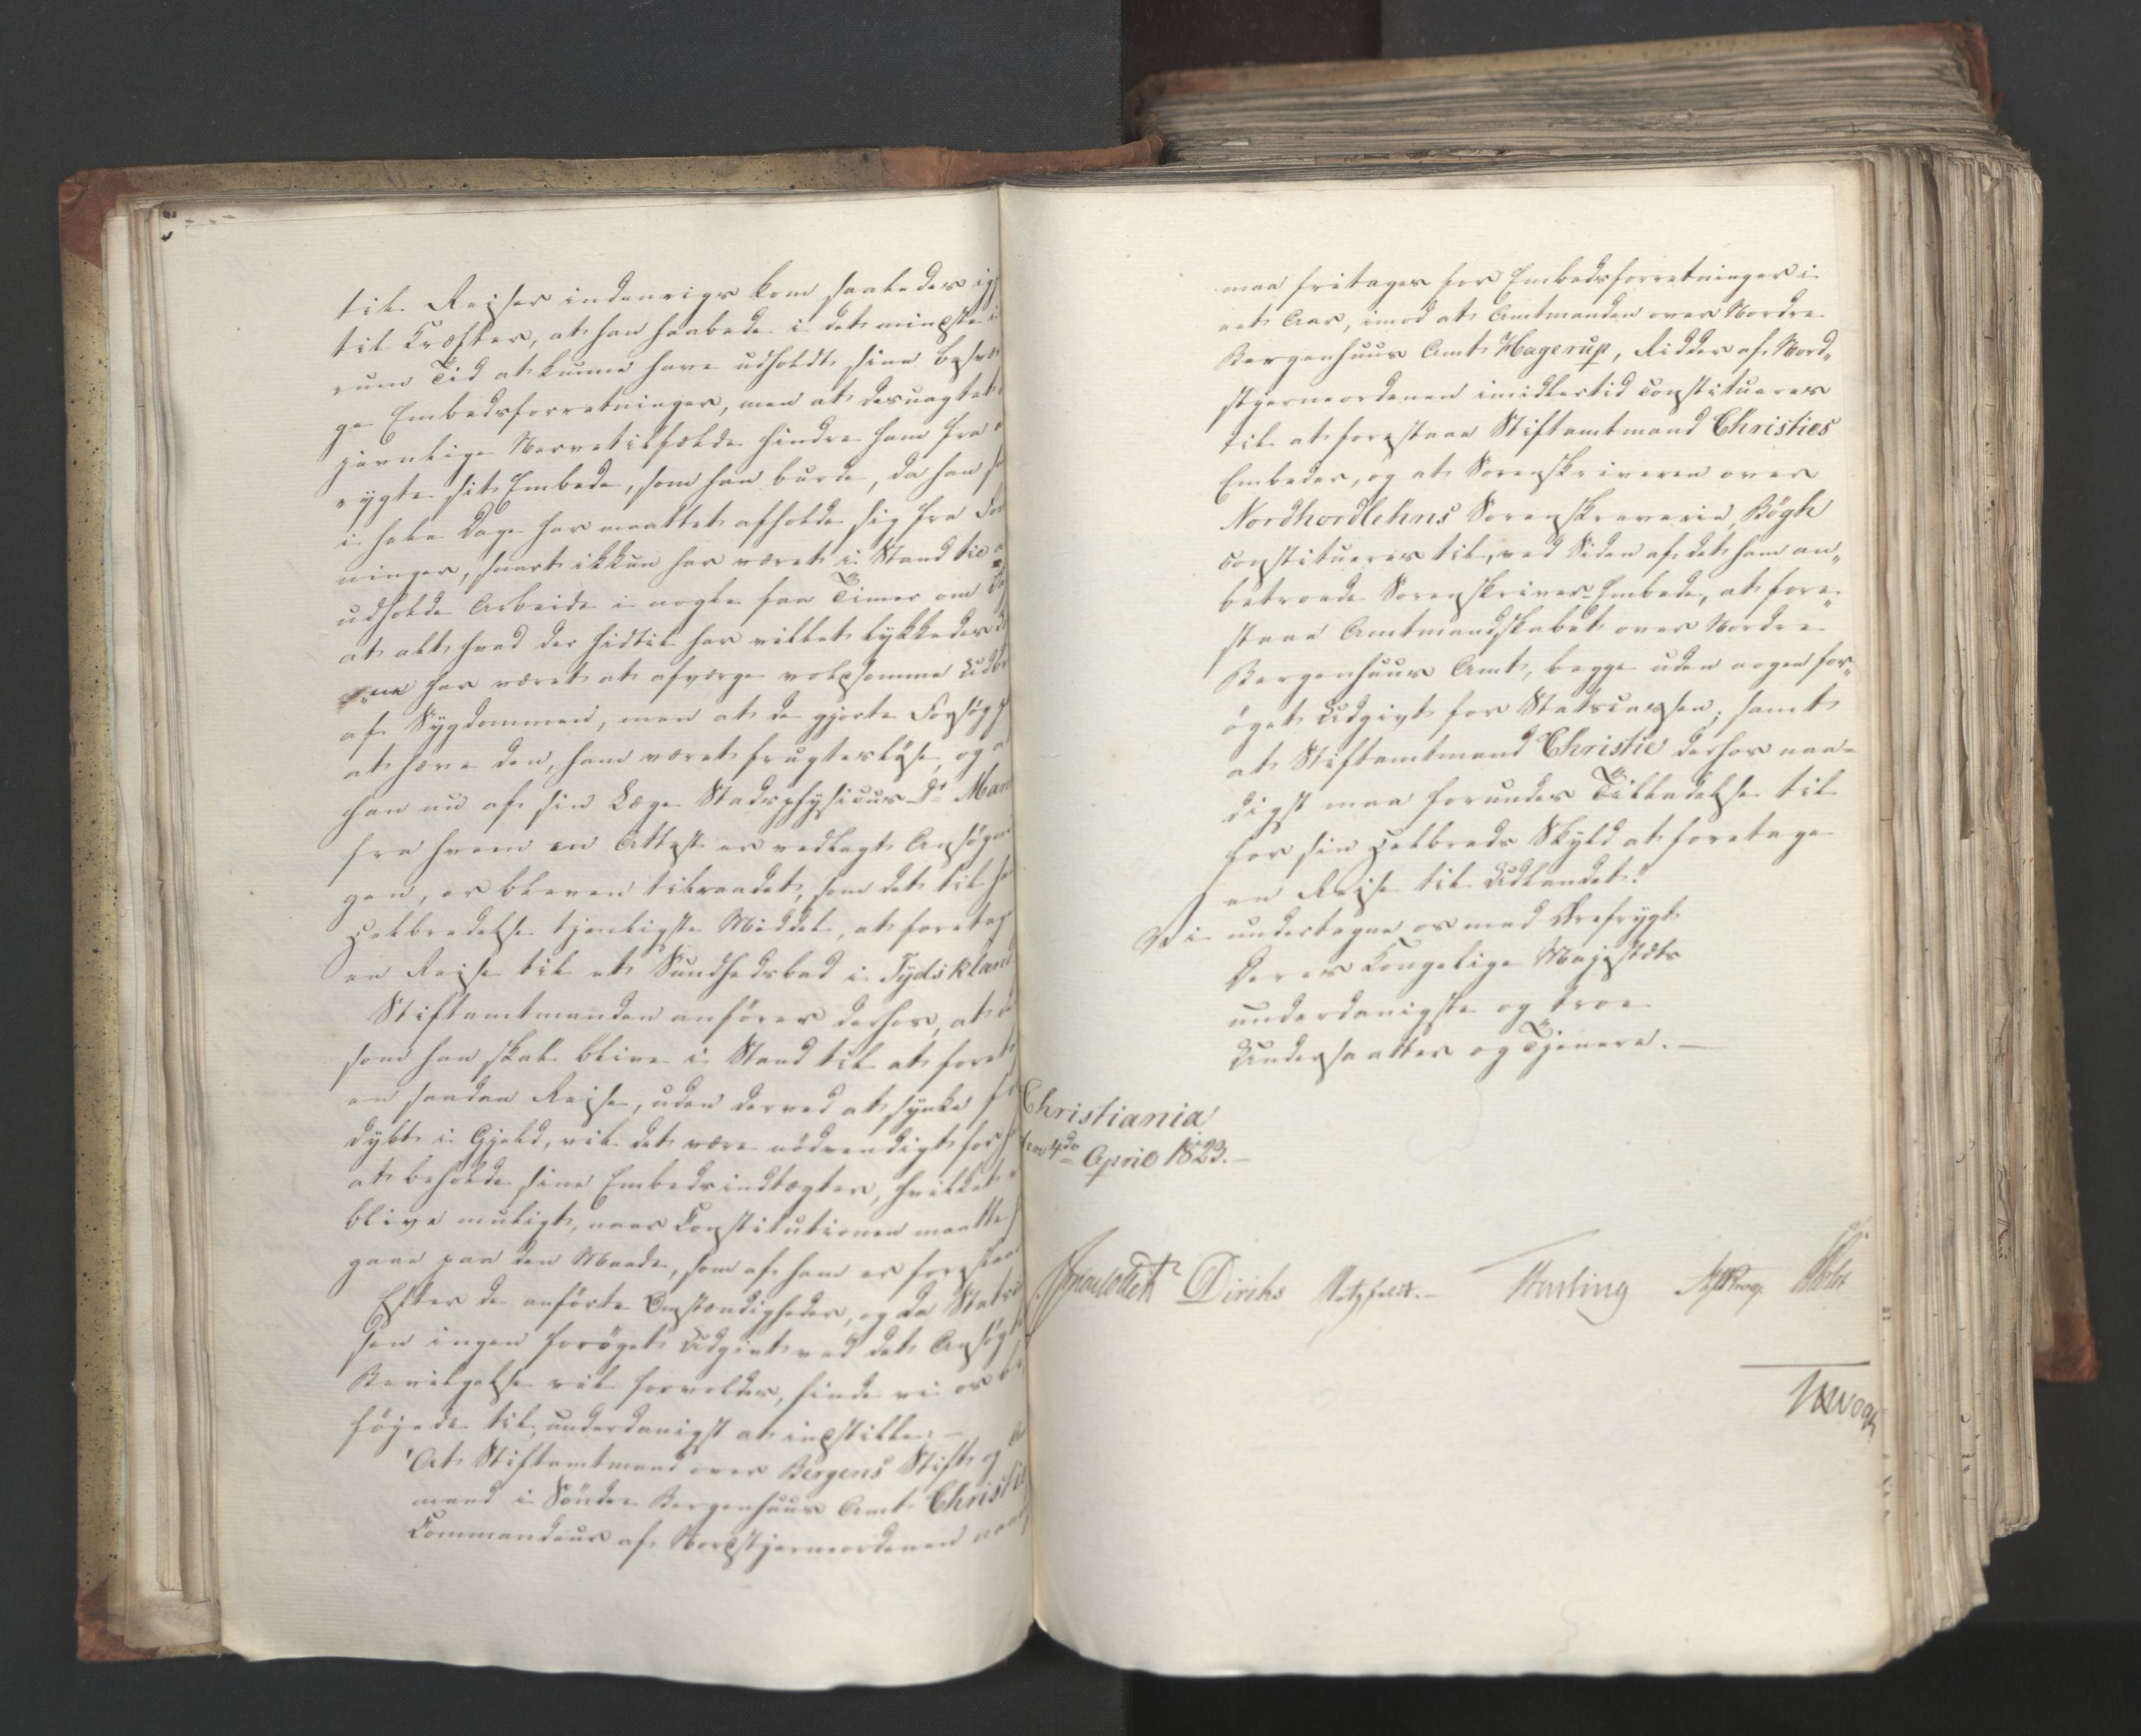 til Reiser indenrigs kom saaledes ig
til Kræfter, at han haabede i det mindste i
rum Tid at kunne have udholdt sine besvæ
ge Embedsforretninger, men at desuagtet
jevnlige Nervetilfælde hindre ham fra
rygte sit Embede, som han burde, da han
i hele Dage har maattet afholde sig fra For
ninger, snart ikkun har været i Stand til
udholde Arbeide i nogle faa Timer om Da
at alt hvad der hidtil har villet lykkedes
har været at afværge voldsomme Udbr
af Sygdommen, men at de gjorte Forsøg
at hæve den, have været frugtesløse, og
han nu af sin Læge Stadsphysicus Dr Man
fra hvem en Attest er vedlagt Ansøgni
gen, er bleven tilraadet, som det til ha
Helbredelse tjenligste Middel, at foretag
en Reise til et Sundhedsbad i Tydskland
Stiftamtmanden anfører derhos, at
som han skal blive i Stand til at foret
en saadan Reise, uden derved at synke f
dybt i Gjeld, vil det være nødvendigt for h
at beholde sine Embedsindtægter, hvilket
blive muligt, naar Constitutionen maatte
gaae paa den Maade, som af ham er foreslaa
Efter de anførte Omstændigheder, og da Statsc
sen ingen forøget Udgivt ved det Ansøgt
Bevilgelse vil forvoldes, finde vi os
føiede til, underdanigst at indstille: –
"At Stiftamtmand over Bergens Stift og
mand i Søndre Bergenhuus Amt Christie
Commandeur af Nordstjerneordenen naad
maa fritages for Embedsforretninger i
eet Aar, imod at Amtmanden over Nordre
Bergenhuus Amt Hagerup, Ridder af Nord„
stjerneordenen imidlertid constitueres
til at forestaae Stiftamtmand Christies
Embeder, og at Sorenskriveren over
Nordhordlehns Sorenskriverie, Bøgh
constitueres til, ved Siden af det ham an„
betroede Sorenskriver-Embede, at fore„
staae Amtmandskabet over Nordre
Bergenhuus Amt, begge uden nogen for„
øget Udgivt for Statscassen; samt
at Stiftamtmand Christie derhos naa-
digst maa forundes Tilladelse til
for sin Helbreds Skyld at foretage
en Reise til Udlandet."
Vi undertegne os med Ærefrygt
Deres Kongelige Majestæts
underdanigste og troe
Undersaatter og Tjenere. –
Christiania
den 4de April 1823. –
Diriks Motzfeldt. – Krog
Vogt